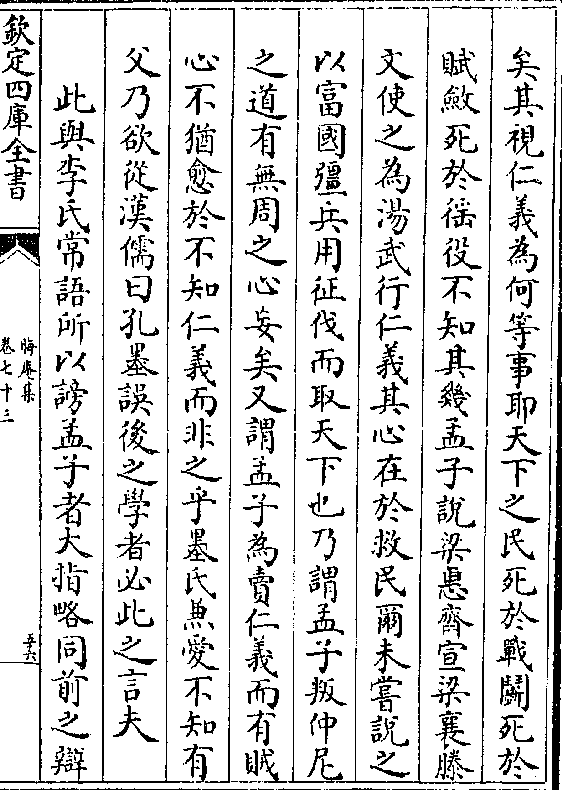 矣其視仁義為何等事耶天下之民死於戰鬭死於
賦斂死於徭役不知其幾孟子說梁惠齊宣梁襄滕
文使之為湯武行仁義其心在於救民爾未嘗說之
以富國彊兵用征伐而取天下也乃謂孟子叛仲尼
之道有無周之心妄矣又謂孟子為賣仁義而有賊
心不猶愈於不知仁義而非之乎墨氏兼愛不知有
父乃欲從漢儒曰孔墨誤後之學者必此之言夫
此與李氏常語所以謗孟子者大指略同前之辯
欽定四庫全書
晦庵集
卷七十三
五六